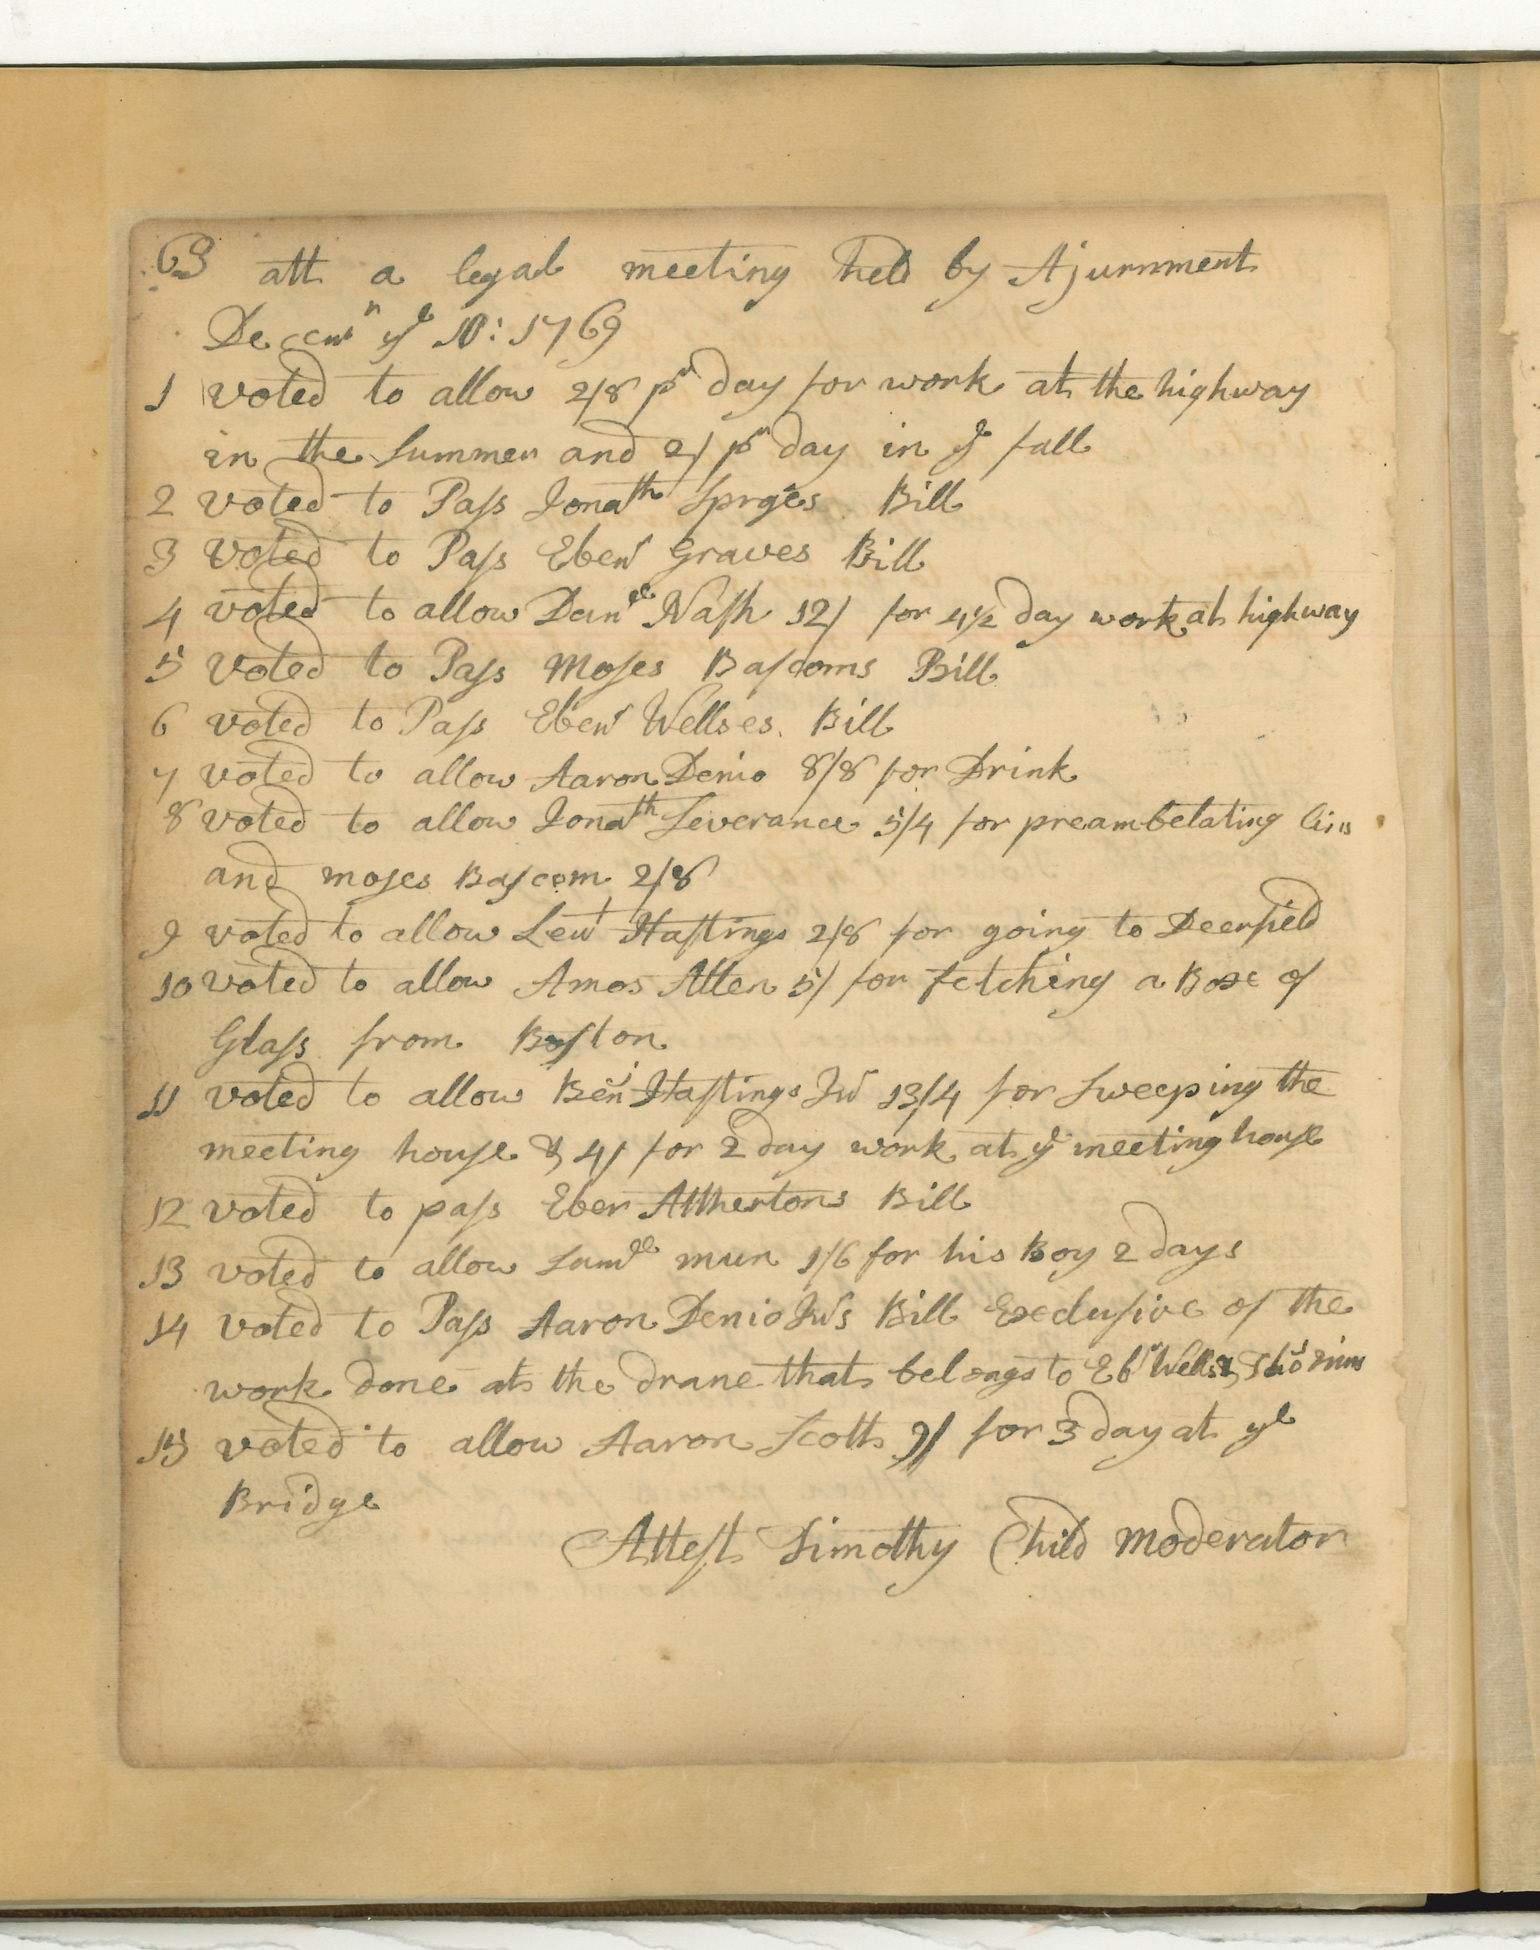 63 att a legal meeting held by Ajurnment
Decemr ye 10: 1769
1 voted to allow 2/8 pr day for work at the highway
in the Summer and 2/ pr day in ye fall
2 voted to Pass Jonath Sprges Bill
3 voted to Pass Ebenr Graves Bill
4 voted to allow Danll Nash 12/ for 4½ day work at highway
5 voted to Pass Moses Bascoms Bill
6 voted to Pass Ebenr Wellses Bill
7 voted to allow Aaron Denio 8/8 for Drink
8 voted to allow Jonath Severance 5/4 for preambelating
and moses Bascom 2/8
9 voted to allow Leut Hastings 2/8 for going to Deerfield
10 voted to allow Amos Allen 5/ for fetching a Boxe of
Glass from Boston
11 voted to allow Benj Hastings Jur 13/4 for Sweeping the
meeting house & 4/ for 2 day work at ye meeting house
12 voted to pass Eber Atthertons Bill
13 voted to allow Samll mun 1/6 for his Boy 2 days
14 voted to Pass Aaron Denio Jurs Bill Exclusive of the
work done at the drane that belongs to Ebr Wells &
15 voted to allow Aaron Scott 9/ for 3 day at ye
Bridge
Attest Timothy Child Moderator